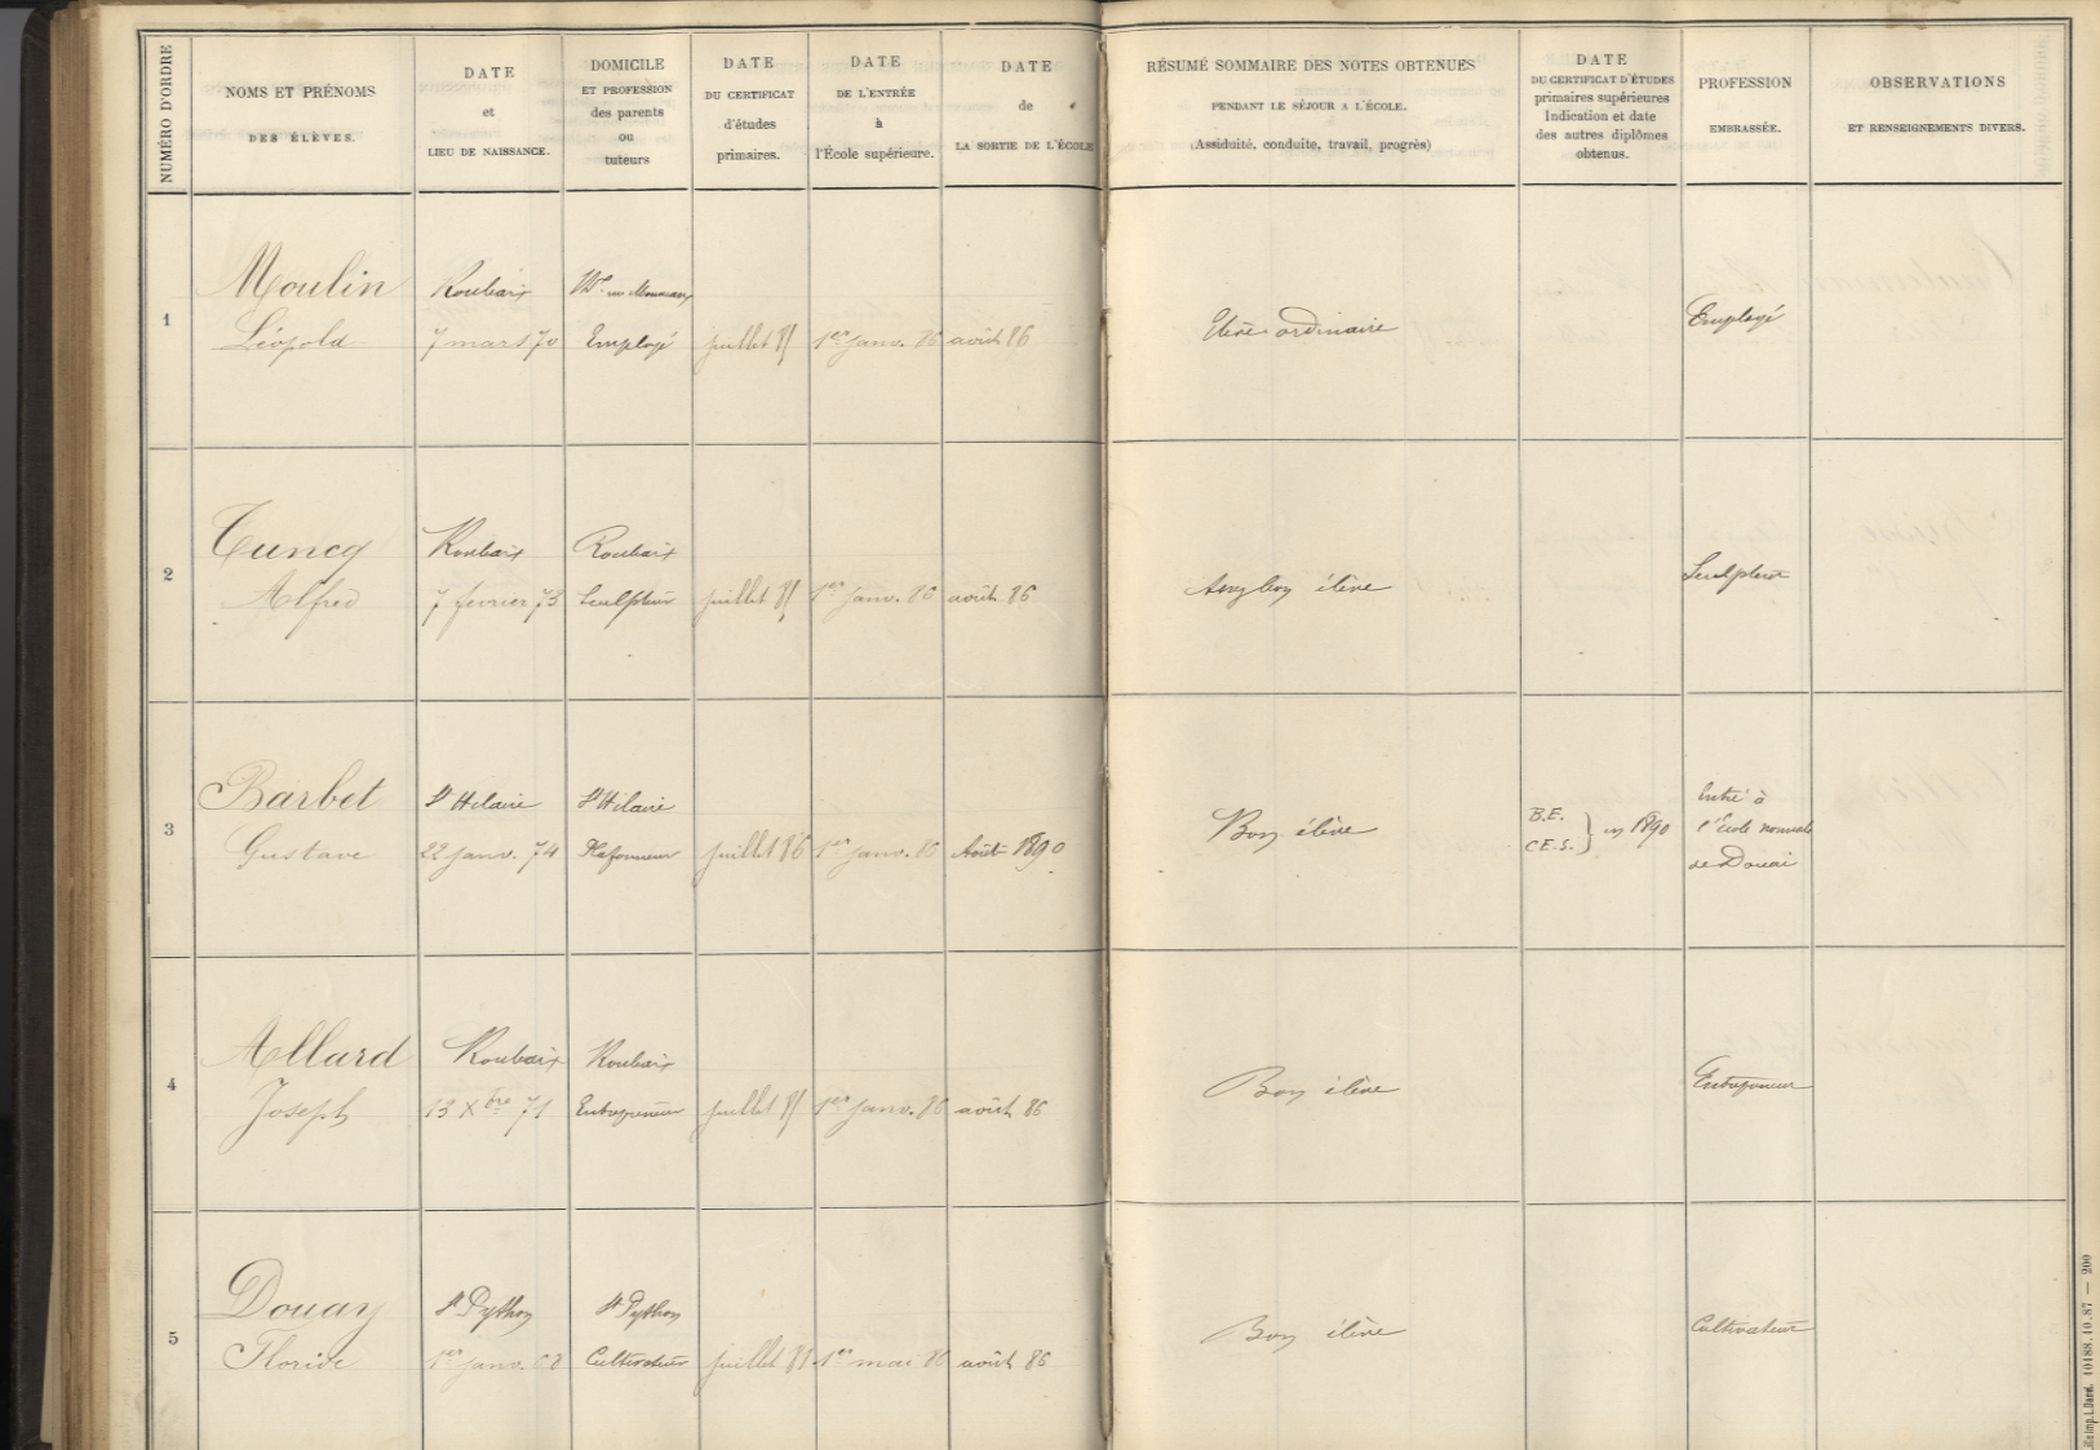 NUMÉRO D'ORDRE
NOMS ET PRÉNOMS
DES ÉLÈVES.
DATE
et
LIEU DE NAISSANCE.
DOMICILE
ET PROFESSION
des parents
ou
tuteurs
DATE
DU CERTIFICAT
d'études
primaires.
DATE
DE L'ENTRÉE
à
l'École supérieure.
DATE
de
LA SORTIE DE L'ÉCOLE
RÉSUMÉ SOMMAIRE DES NOTES OBTENUES
PENDANT LE SÉJOUR A L'ÉCOLE.
(Assiduité, conduite, travail, progrès)
DATE
DU CERTIFICAT D'ÉTUDES
primaires supérieures
Indication et date
des autres diplômes
obtenus.
PROFESSION
EMBRASSÉE.
OBSERVATIONS
ET RENSEIGNEMENTS DIVERS.
1
Moulin
Léopold
Roubaix
7 mars 70
Employé
juillet 85
1er janv. 86
août 86
Elève ordinaire
Employé
2
Cuncq
Alfred
Roubaix
7 février 73
Roubaix
Sculpteur
juillet 85
1er janv. 86
août 86
Assez bon élève
Sculpteur
3
Barbet
Gustave
St Hilaire
22 janv. 74
St Hilaire
Plafonneur
juillet 86
1er janv. 86
Août 1890
Bon élève
B.E.
C.E.S. } en 1890
Entré à
l'école normale
de Douai
4
Allard
Joseph
Roubaix
13 Xbre 71
Roubaix
Entrepreneur
juillet 85
1er janv. 86
août 86
Bon élève
Entrepreneur
5
Douay
Floride
St Python
1er janv. 68
St Python
Cultivateur
juillet 81
1er mai 86
août 86
Bon élève
Cultivateur
Imp. L. Danel. 10188.10.87 — 200